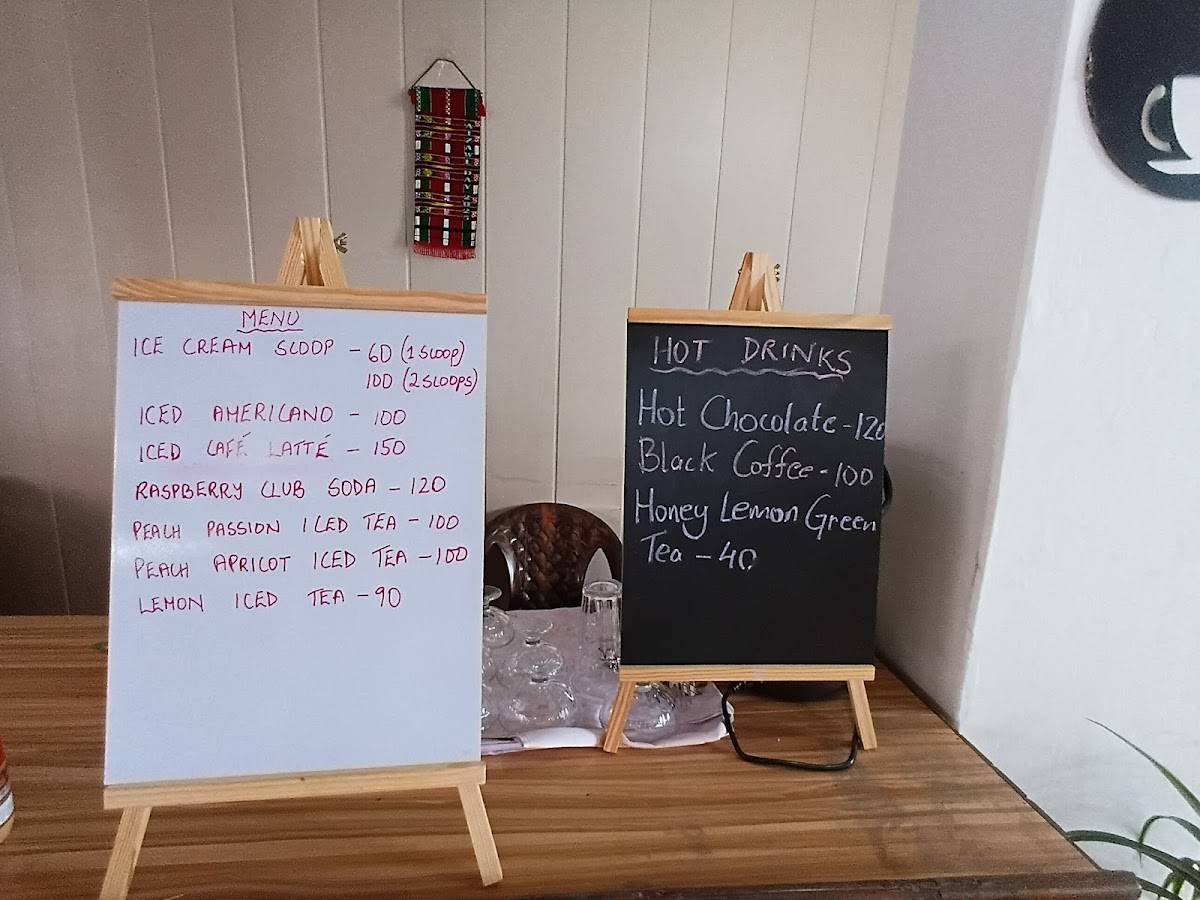 MENU
ICE CREAM SCOOP - 60 (1 SCOOP)
100 (2 SCOOPS)
ICED AMERICANO - 100
ICED CAFÉ LATTÉ - 150
RASPBERRY CLUB SODA - 120
PEACH PASSION ICED TEA - 100
PEACH APRICOT ICED TEA - 100
LEMON ICED TEA - 90
HOT DRINKS
Hot Chocolate - 120
Black Coffee - 100
Honey Lemon Green
Tea - 40